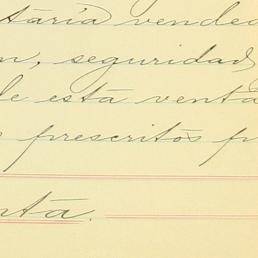 taria vended
n, seguridad
de esta venta
prescritos p
nta.